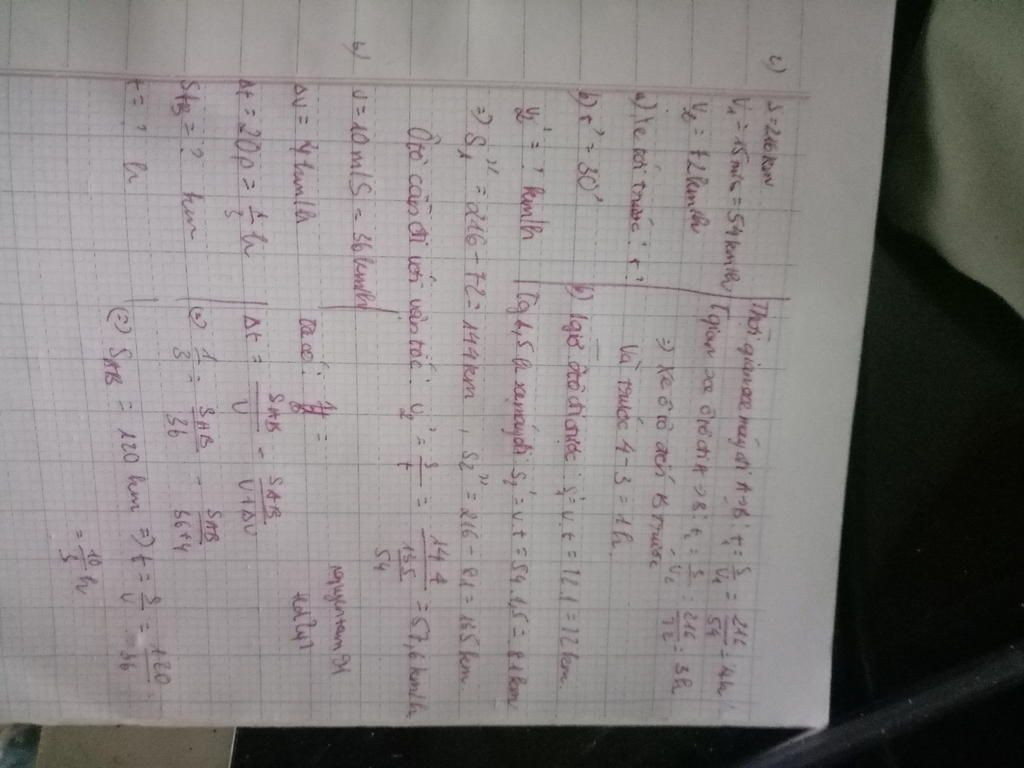 c)
S = 216 km
V₁ = 15 m/s = 54 km/h
V₂ = 72 km/h
a) Xe tới trước ? t?
b) t' = 30'
V₂' = ? km/h
Thời gian xe máy đi A→B: t₁ = S/V₁ = 216/54 = 4h
Tgian xe ôtô đi A→B: t₂ = S/V₂ = 216/72 = 3h
⇒ Xe ôtô đến B trước
Và trước 4 - 3 = 1h.
b) ôtô đi được: S' = v.t = 72.1 = 72km.
Tg 1,5h xe máy đi S₁' = v.t = 54.1,5 = 81km
⇒ S₁'' = 216 - 72 = 144km, S₂'' = 216 - 81 = 135km.
Ôtô cần đi với vận tốc: V₂' = S/t = 144/(135/54) = 57,6 km/h
b)
v = 10m/s = 36km/h
Δv = 4km/h
Δt = 20p = 1/3 h
S_AB = ? km
t = ? h
Ta có:
Δt = S_AB/v - S_AB/(v+Δv)
(=) 1/3 = S_AB/36 - S_AB/(36+4)
(=) S_AB = 120 km ⇒ t = S/v = 120/36
= 10/3 h